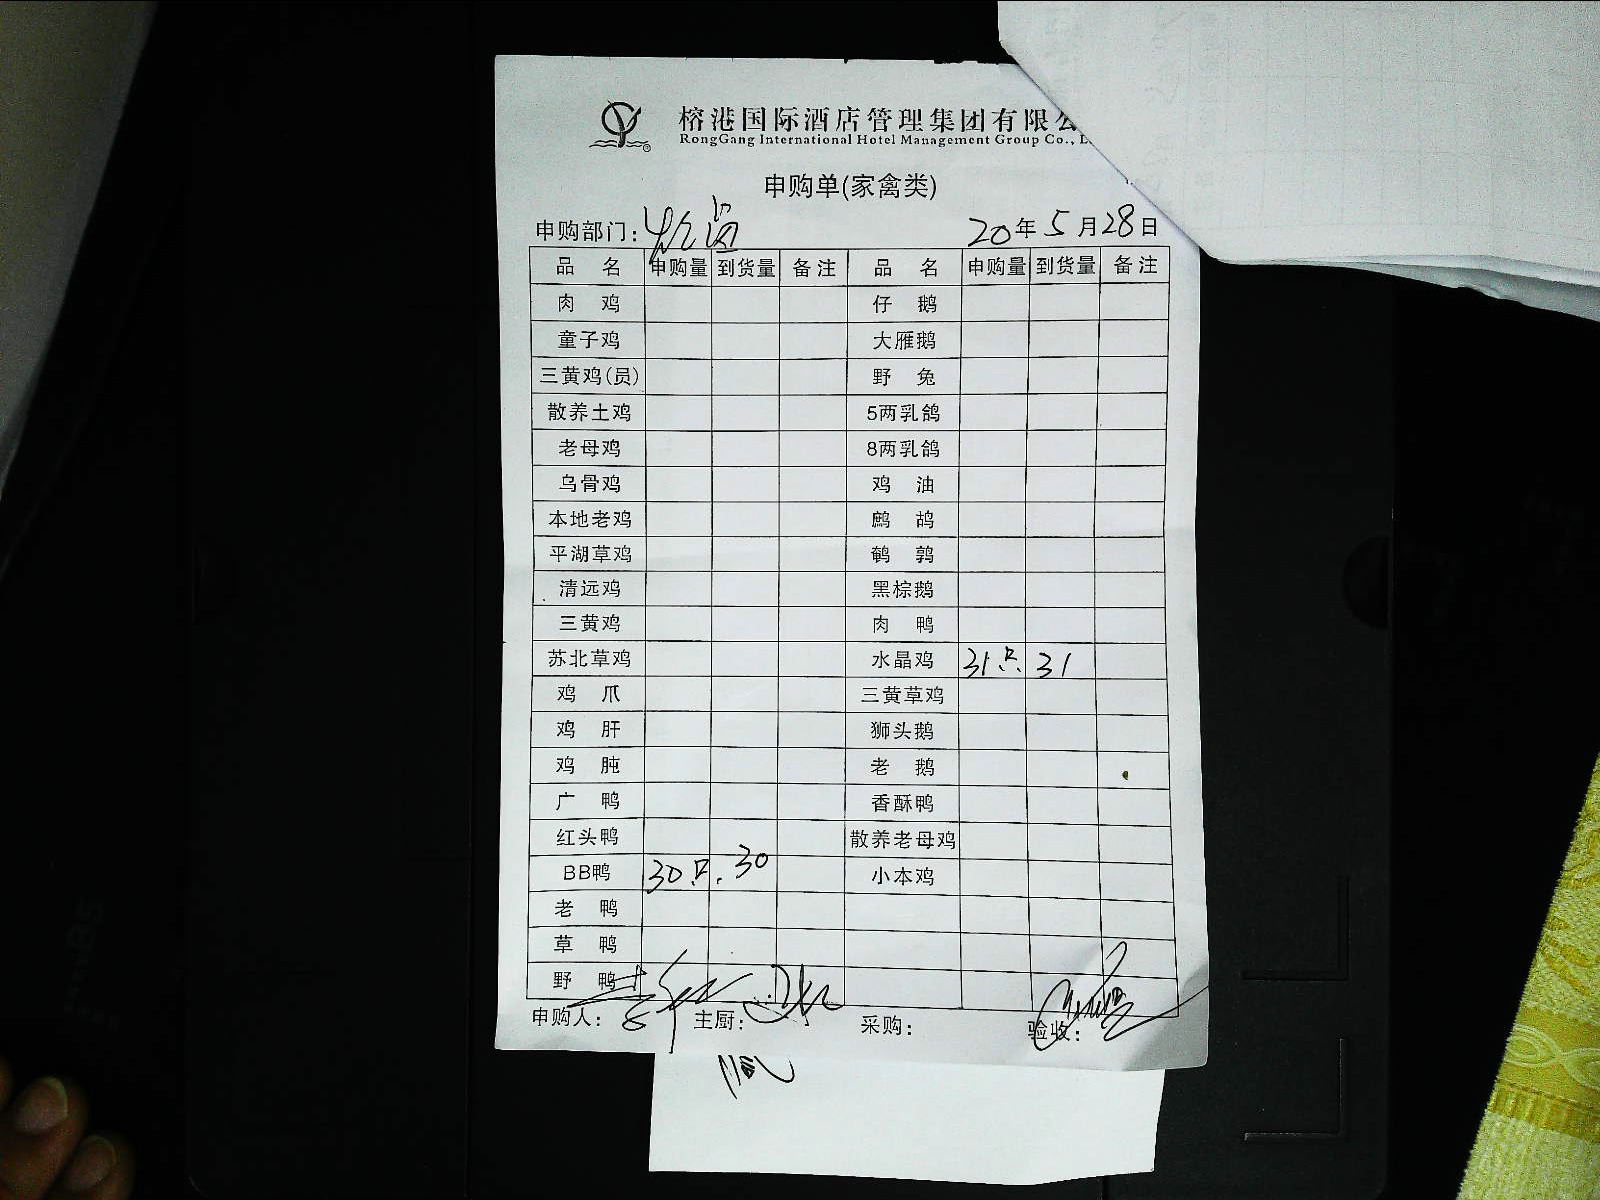 榕港国际酒店管理集团有限公
RongGang International Hotel Management Group Co., L
申购单(家禽类)
申购部门: 20年5月28日
品 名 申购量 到货量 备注 品 名 申购量 到货量 备注
肉 鸡 仔 鹅
童子鸡 大雁鹅
三黄鸡(员) 野 兔
散养土鸡 5两乳鸽
老母鸡 8两乳鸽
乌骨鸡 鸡 油
本地老鸡 鹧 鸪
平湖草鸡 鹌 鹑
清远鸡 黑棕鹅
三黄鸡 肉 鸭
苏北草鸡 水晶鸡 31只. 31
鸡 爪 三黄草鸡
鸡 肝 狮头鹅
鸡 肫 老 鹅
广 鸭 香酥鸭
红头鸭 散养老母鸡
BB鸭 30只. 30 小本鸡
老 鸭
草 鸭
野 鸭
申购人: 主厨: 采购: 验收: